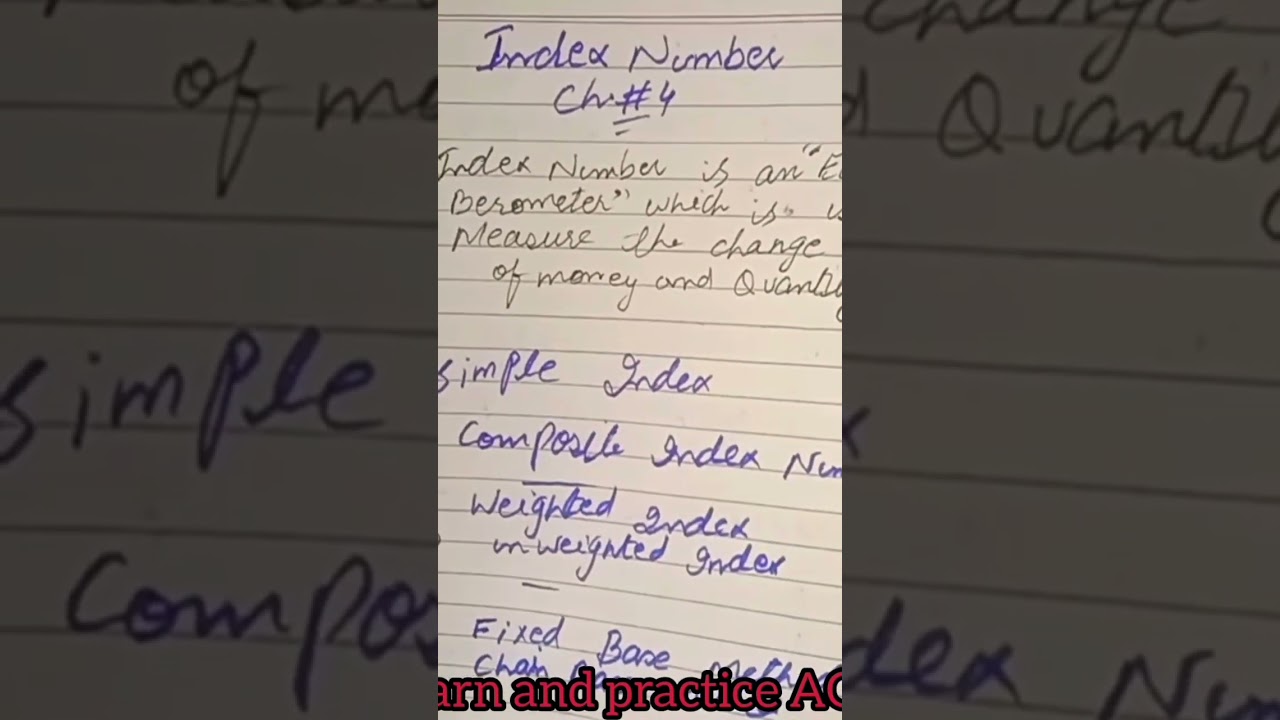 Index Number
Ch.#4
Index Number is an "E
Berometer" which is
Measure the change
of money and Quantity
simple Index
Composite Index Num
Weighted Index
unweighted Index
Fixed Base Meth
Chain
arn and practice AC